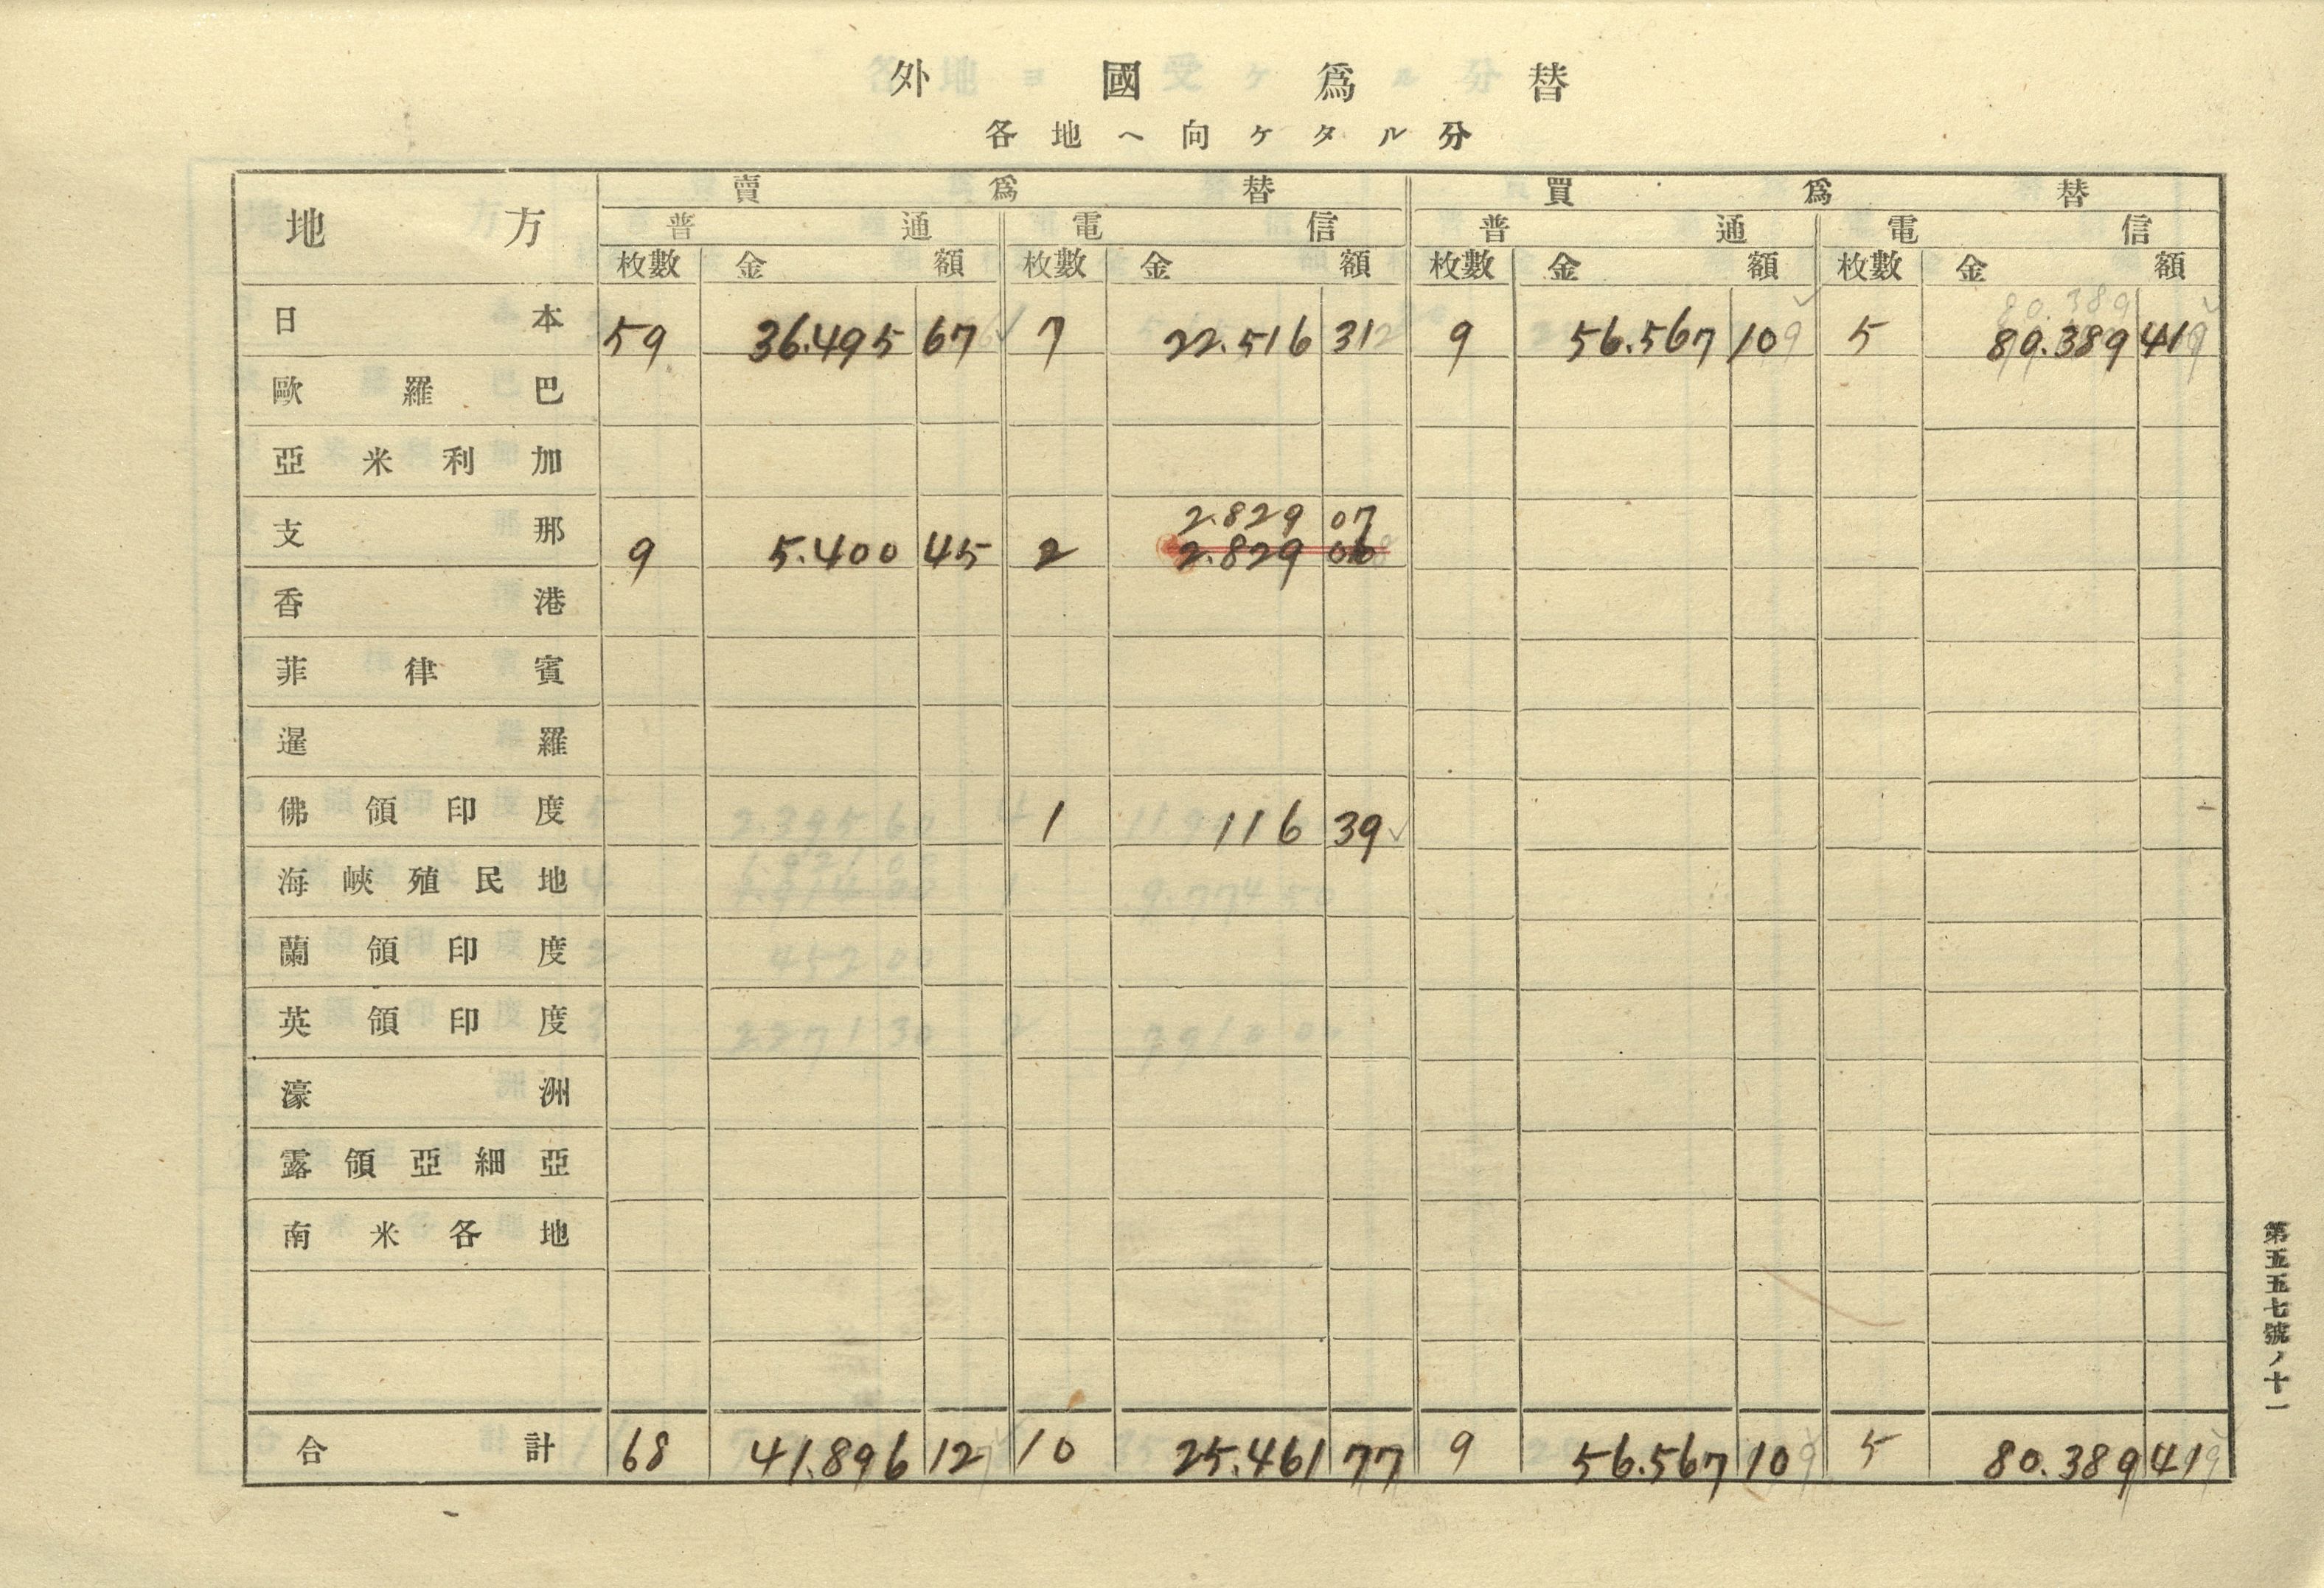 外國爲替
各地ヘ向ケタル分
地方 賣爲替 買爲替
普通 電信 普通 電信
枚數 金額 枚數 金額 枚數 金額 枚數 金額
80.389
日本 59 36.495 67 7 22.516 31 9 56.567 10 5 80.389 41
歐羅巴
亞米利加
2.829 07
支那 9 5.400 45 2 2.829 06
香港
菲律賓
暹羅
佛領印度 1 116 39
海峽殖民地
蘭領印度
英領印度
濠洲
露領亞細亞
南米各地
合計 68 41.896 12 10 25.461 77 9 56.567 10 5 80.389 41
第五五七號ノ十一